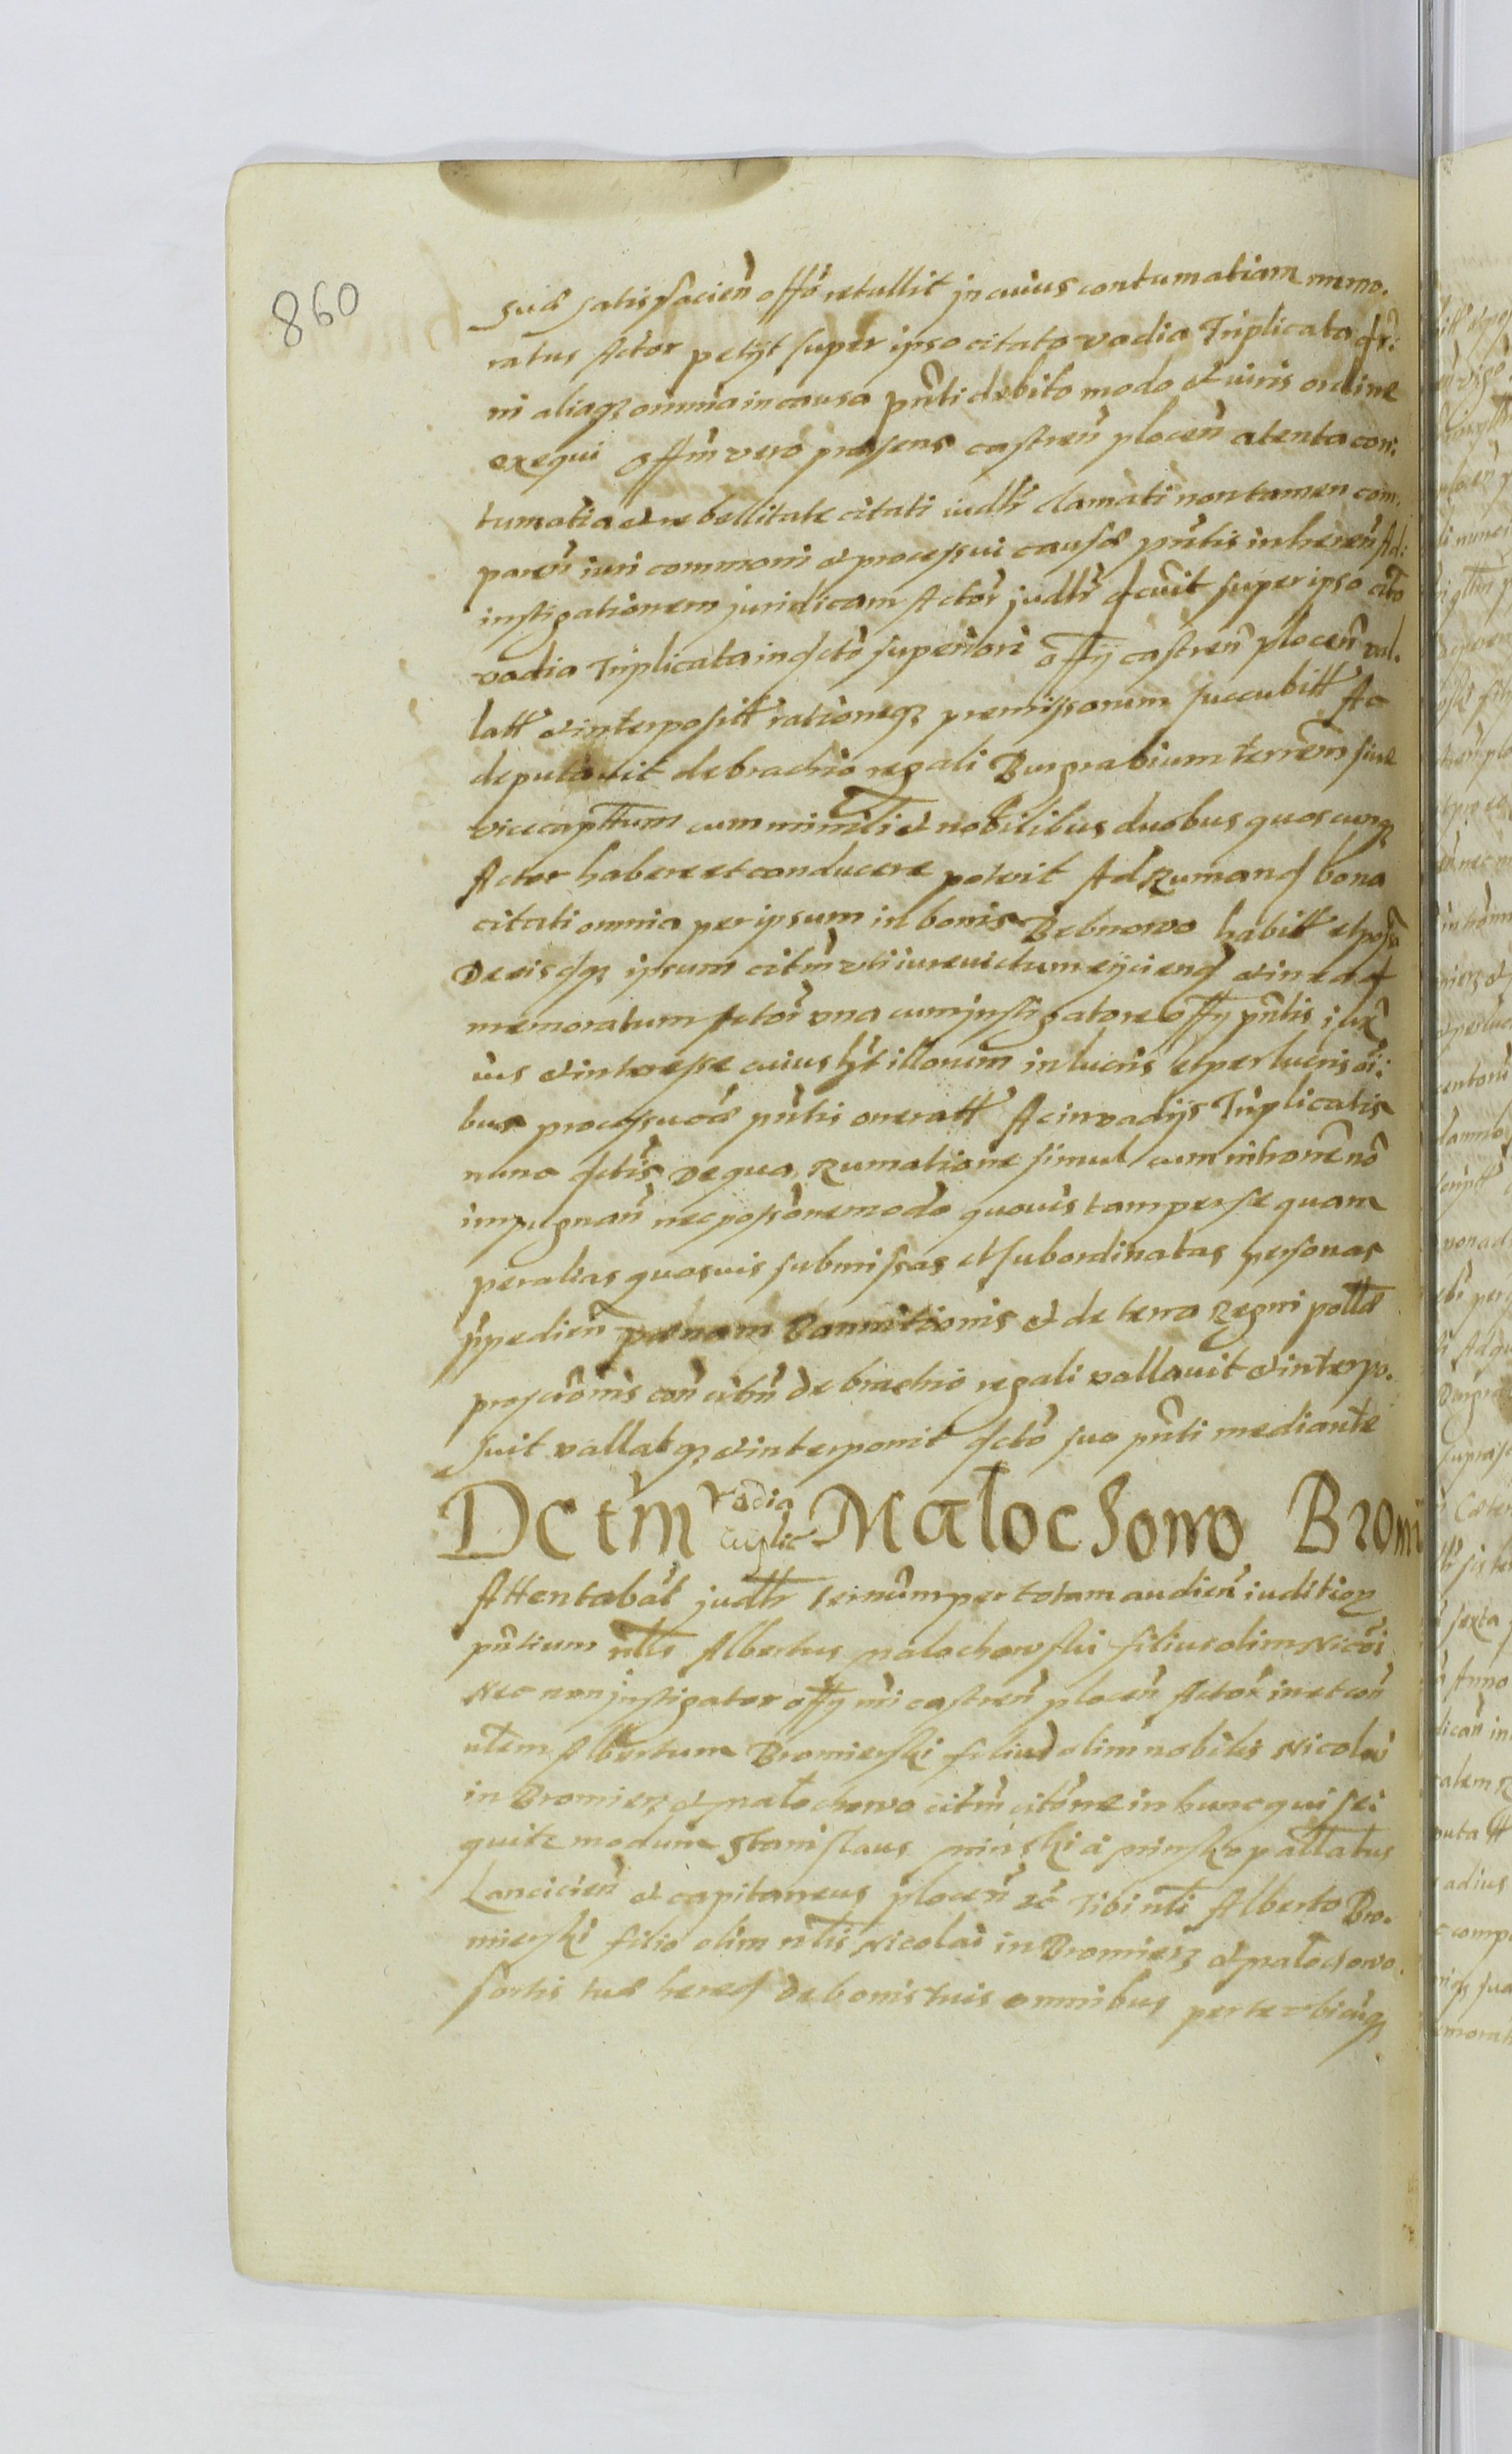 860
suæ satisfacien̄ offō retullit jn cuius contumatiam memo.
ratus Actor petÿt super ipso citato vadia Triplicata dcr̄:
ni aliaqȝ omnia in causa pn̄ti debito modo et iuris ordine
exequi offm̄ vero præsens castren̄ plocen̄ atenta con:
tumatia et rebellitate citati iudlr̄ clamati non tamen com.
paren̄ iuri commoni et processui causæ pn̄tis inheren̄ Ad:
instigationem juridicam Actor̄ judlr̄ dcuit super ipso cito
vadia Triplicata in dcto superiori offÿ castren̄ plocen̄ val.
latt et interposit rationeqȝ premissorum succubitt Ac
deputavit de brachio regali Burgrabium terren̄ siue
vicecapttum cum mintli et nobilibus duobus quoscunqȝ
Actor habere et conducere poterit Ad Rumand bona
citati omnia per ipsum in bonis Bebnowo habitt et possa
De eisdqȝ ipsum citm̄ vti iure victum eÿciend et in ead
memoratum Actor̄ vna cum jnstigatore offÿ pn̄tis iux̄
ius et interesse cuius lȳt illorum in lucris et perlucris oī:
bus processuoæ pn̄tis oneratt Ac in vadÿs Triplicatis
nunc dctis De qua Rumatione simul cum intromne nō
impugnan̄ nec possōne modo quouis tam per se quam
per alias quasuis submissas et subordinatas personas
jmpedien̄ pænam Bannitionis et de terra Regni pollæ
proscrōnis con̄ citm̄ de brachio regali vallauit et interpo.
suit vallatqȝ et interponit dcto suo pn̄ti mediante
Dctm̄ vadia triplic Małochowo Bromi
Attentabat judlr̄ ternūm per totam audien̄ iuditioȝ
pn̄tium nlls Albertus małochowski filius olim Nicoī
Nec non jnstigator offÿ nr̄i castren̄ plocen̄ Actor̄ in et con̄
nlem Albertum Bromierski filium olim nobilis Nicolai
in Bromierz et małochowo citm̄ citōne in hunc qui se:
quitr modum Stanislaus minski a minsko pallatus
Lancicien̄ et capitaneus plocen̄ etc Tibi nlli Alberto Bro.
mierski filio olim nlis Nicolai in Bromierz et małochowo
sortis tuæ hered de bonis tuis omnibus per te vbicunqȝ